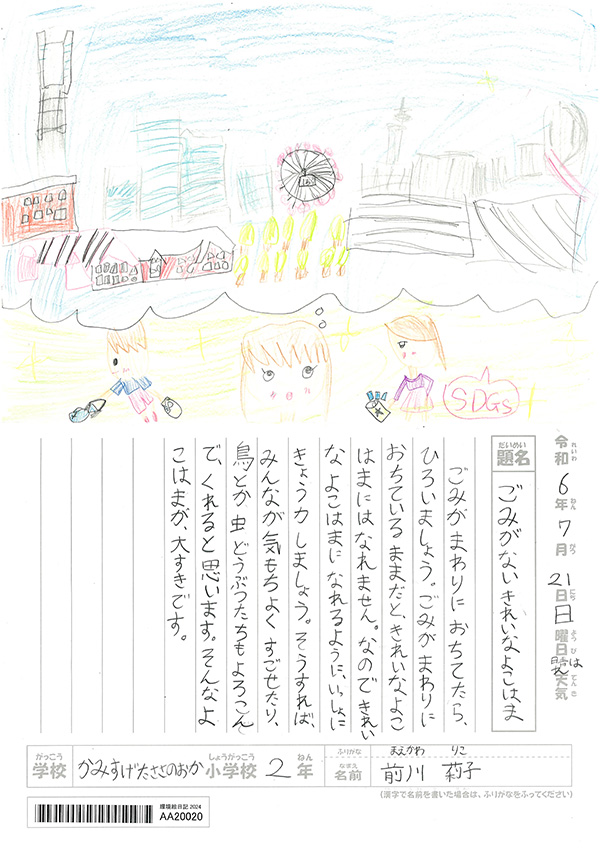 SDGs
令和6年7月21日日曜日天気はれ
れいわ ねん がつ にち ようび てんき
だいめい
題名
ごみがないきれいなよこはま
ごみがまわりにおちてたら、
ひろいましょう。ごみがまわりに
おちているままだと、きれいなよこ
はまにはなれません。なのできれい
なよこはまになれるように、いっしょに
きょう力しましょう。そうすれば、
みんなが気もちよくすごせたり、
鳥とか虫どうぶつたちもよろこん
で、くれると思います。そんなよ
こはまが、大すきです。
がっこう しょうがっこう ねん
学校 かみすげたささのおか小学校 2年
ふりがな まえかわ りこ
なまえ
名前 前川 莉子
(漢字で名前を書いた場合は、ふりがなをふってください)
環境絵日記 2024
AA20020